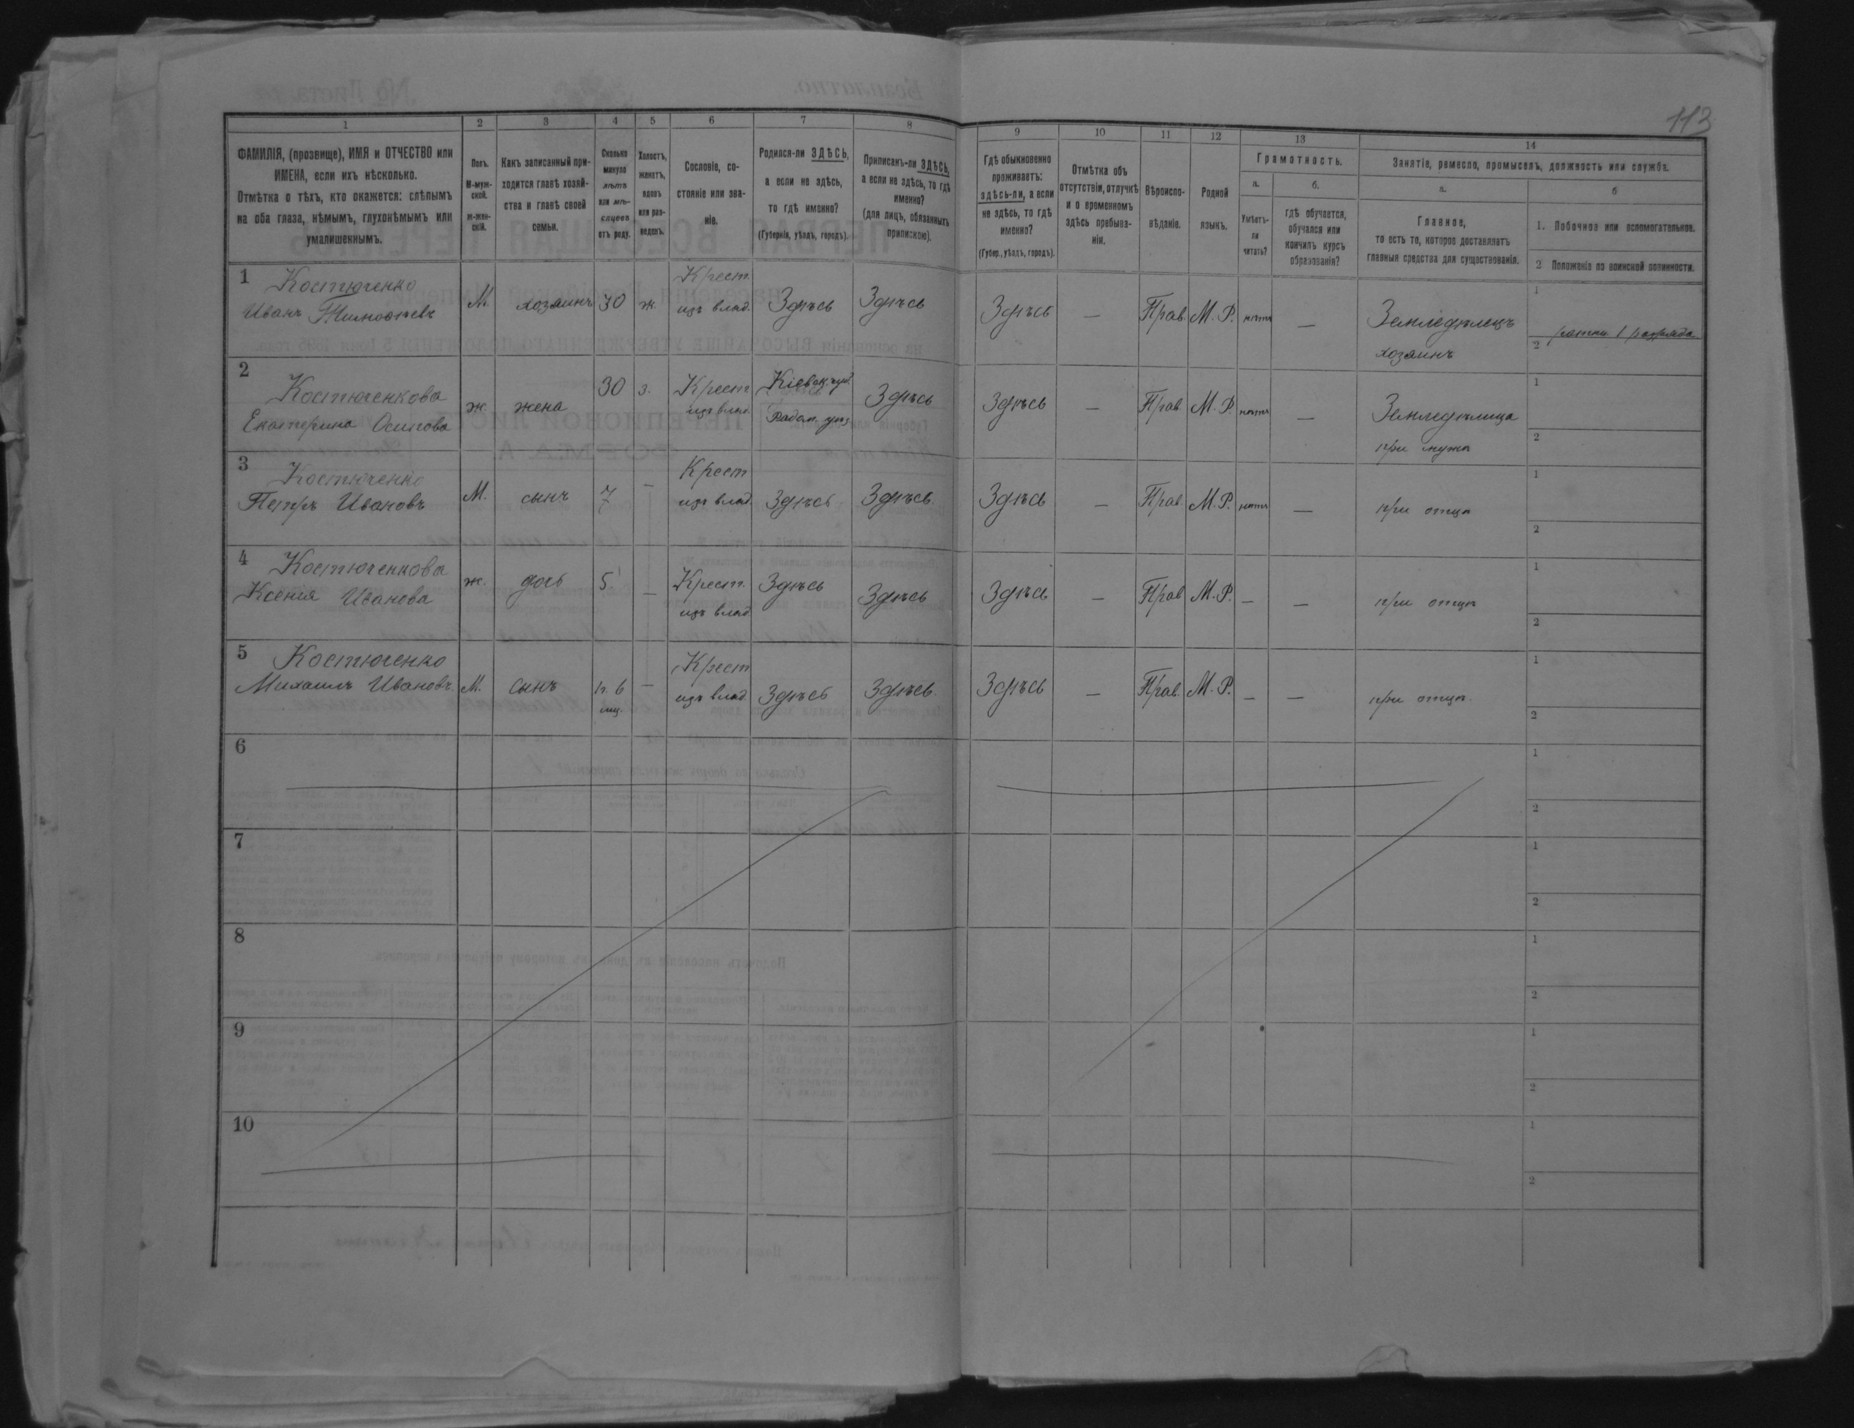 113
1 2 3 4 5 6 7 8 9 10 11 12 13 14
ФАМИЛІЯ, (прозвище), ИМЯ и ОТЧЕСТВО или
ИМЕНА, если ихъ нѣсколько.
Отмѣтка о тѣхъ, кто окажется: слѣпымъ
на оба глаза, нѣмымъ, глухонѣмымъ или
умалишеннымъ.
Полъ.
М-муж-
ской.
Ж-жен-
скій.
Какъ записанный при-
ходится главѣ хозяй-
ства и главѣ своей
семьи.
Сколько
минуло
лѣтъ
или мѣ-
сяцевъ
отъ роду.
Холостъ,
женатъ,
вдовъ
или раз-
веденъ.
Сословіе, со-
стояніе или зва-
ніе.
Родился-ли ЗДѢСЬ,
а если не здѣсь,
то гдѣ именно?
(Губернія, уѣздъ, городъ).
Приписанъ-ли ЗДѢСЬ,
а если не здѣсь, то гдѣ
именно?
(для лицъ, обязанныхъ
припискою).
Гдѣ обыкновенно
проживаетъ:
здѣсь-ли, а если
не здѣсь, то гдѣ
именно?
(Губер., уѣздъ, городъ).
Отмѣтка объ
отсутствіи, отлучкѣ
и о временномъ
здѣсь пребыва-
ніи.
Вѣроиспо-
вѣданіе.
Родной
языкъ.
Грамотность.
а.
Умѣетъ-
ли
читать?
б.
гдѣ обучается,
обучался или
кончилъ курсъ
образованія?
Занятіе, ремесло, промыселъ, должность или служба.
а.
Главное,
то есть то, которое доставляетъ
главныя средства для существованія.
б
1. Побочное или вспомогательное.
2 Положеніе по воинской повинности.
1 Костюченко
Иванъ Тимофѣевъ
М. хозяинъ 30 ж.
Крест.
изъ влад.
Здѣсь Здѣсь Здѣсь — Прав. М. Р. нѣтъ —
Земледѣлецъ
хозяинъ
1
2
ратн. 1 разряда
2
Костюченкова
Екатерина Осипова
ж. жена 30 з.
Крест
изъ влад.
Кіевск. губ.
Радом. уѣз.
Здѣсь Здѣсь — Прав М. Р. нѣтъ —
Земледѣлица
при мужѣ
1
2
3 Костюченко
Петръ Ивановъ
М. сынъ 7 —
Крест
изъ влад
Здѣсь Здѣсь. Здѣсь — Прав М. Р. нѣтъ — при отцѣ
1
2
4 Костюченкова
Ксенія Иванова
ж. дочь 5 —
Крест.
изъ влад
Здѣсь Здѣсь Здѣсь — Прав М. Р. — — при отцѣ
1
2
5 Костюченко
Михаилъ Ивановъ
М. сынъ 6 —
Крест
изъ влад
Здѣсь Здѣсь. Здѣсь — Прав. М. Р. — — при отцѣ.
1
2
6
1
2
7
1
2
8
1
2
9
1
2
10
1
2